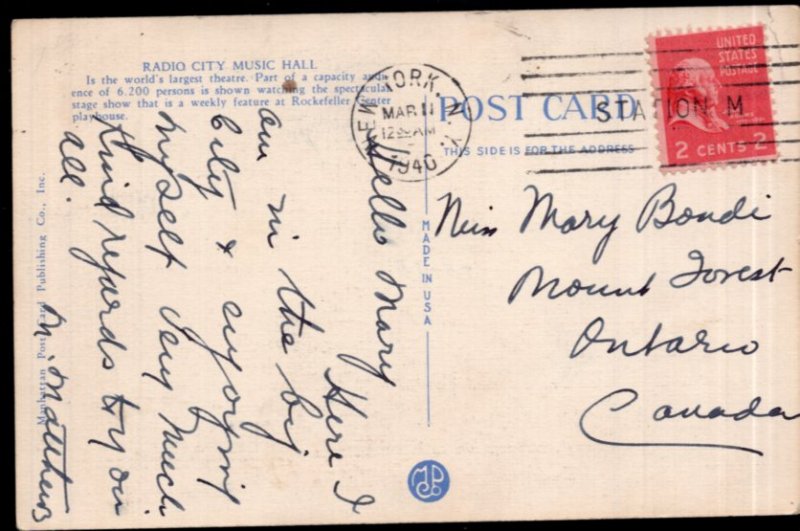 RADIO CITY MUSIC HALL
Is the world's largest theatre. Part of a capacity audi-
ence of 6,200 persons is shown watching the spectacular
stage show that is a weekly feature at Rockefeller Center
playhouse.
Hello Mary
Here I
am in the big
City & enjoying
myself very much
Kind regards to you
all.
M. Matthews
Manhattan Post Card Publishing Co., Inc.
MADE IN USA
MPCo
NEW YORK, N.Y.
MAR 11
12 AM
1940
STATION M
POST CARD
THIS SIDE IS FOR THE ADDRESS
UNITED
STATES
POSTAGE
2 CENTS 2
Miss Mary Bondi
Mount Forest
Ontario
Canada